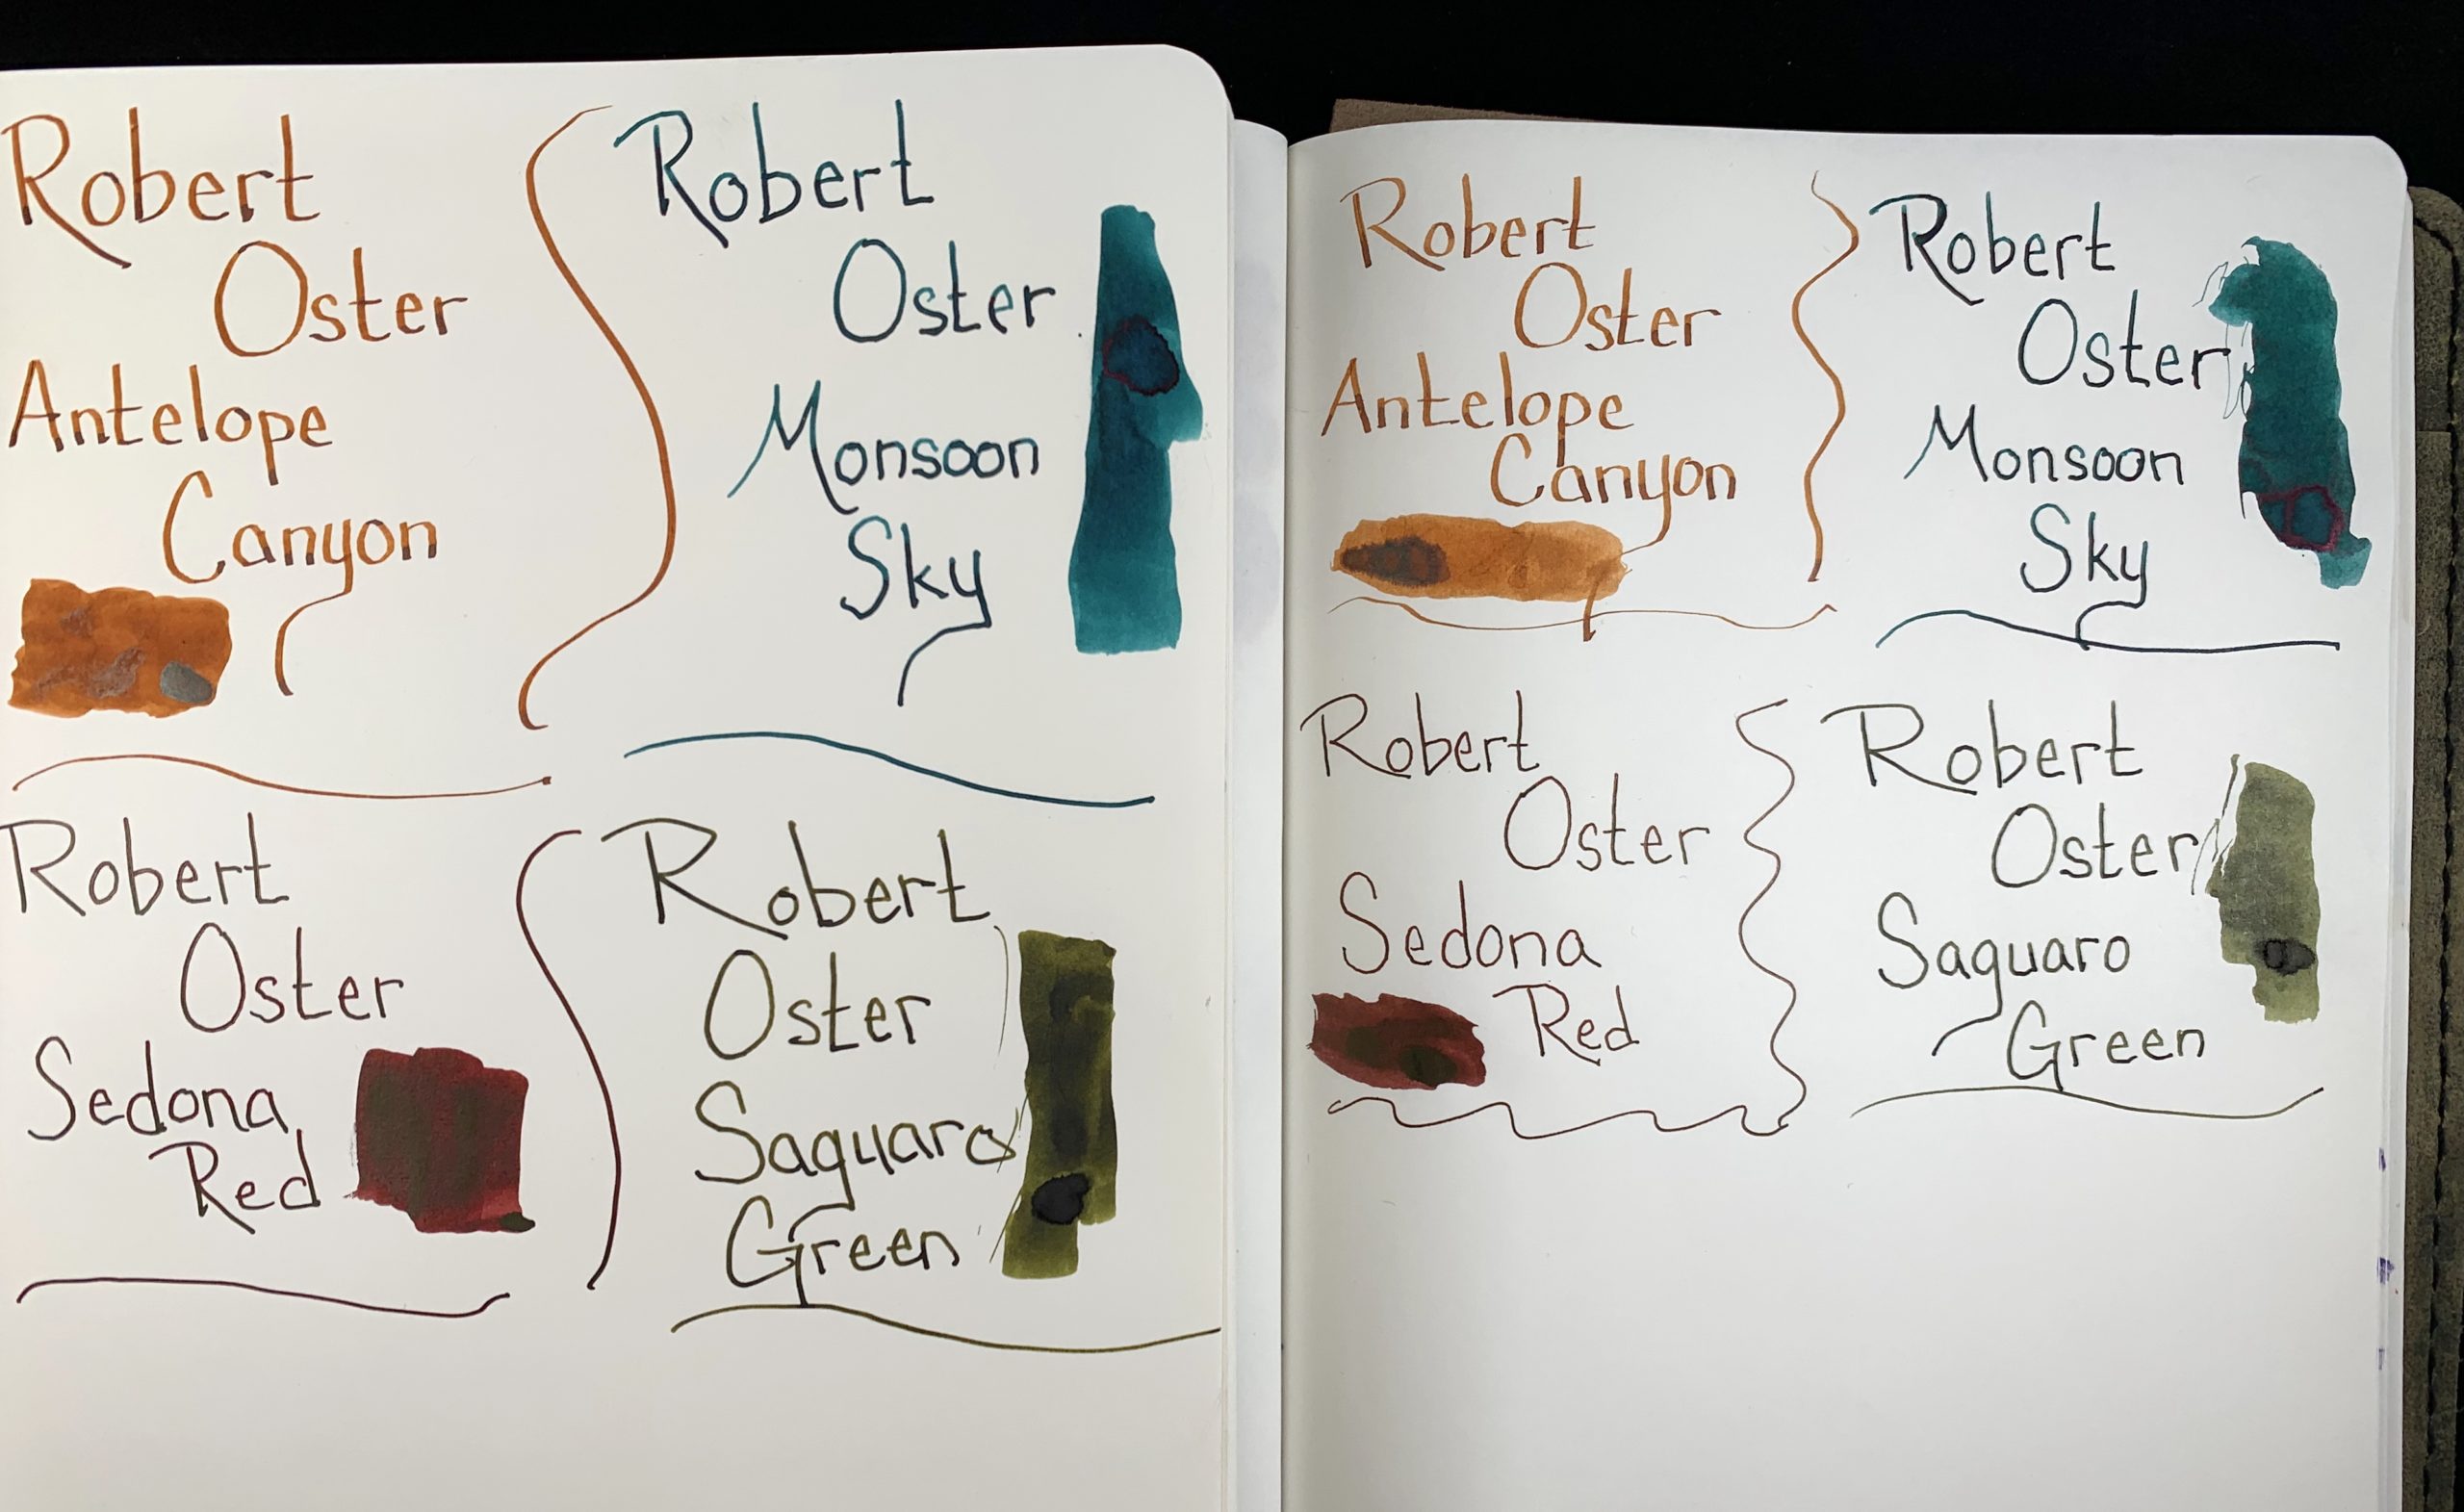 Robert
Oster
Antelope
Canyon
Robert
Oster
Monsoon
Sky
Robert
Oster
Sedona
Red
Robert
Oster
Saguaro
Green
Robert
Oster
Antelope
Canyon
Robert
Oster
Monsoon
Sky
Robert
Oster
Sedona
Red
Robert
Oster
Saguaro
Green